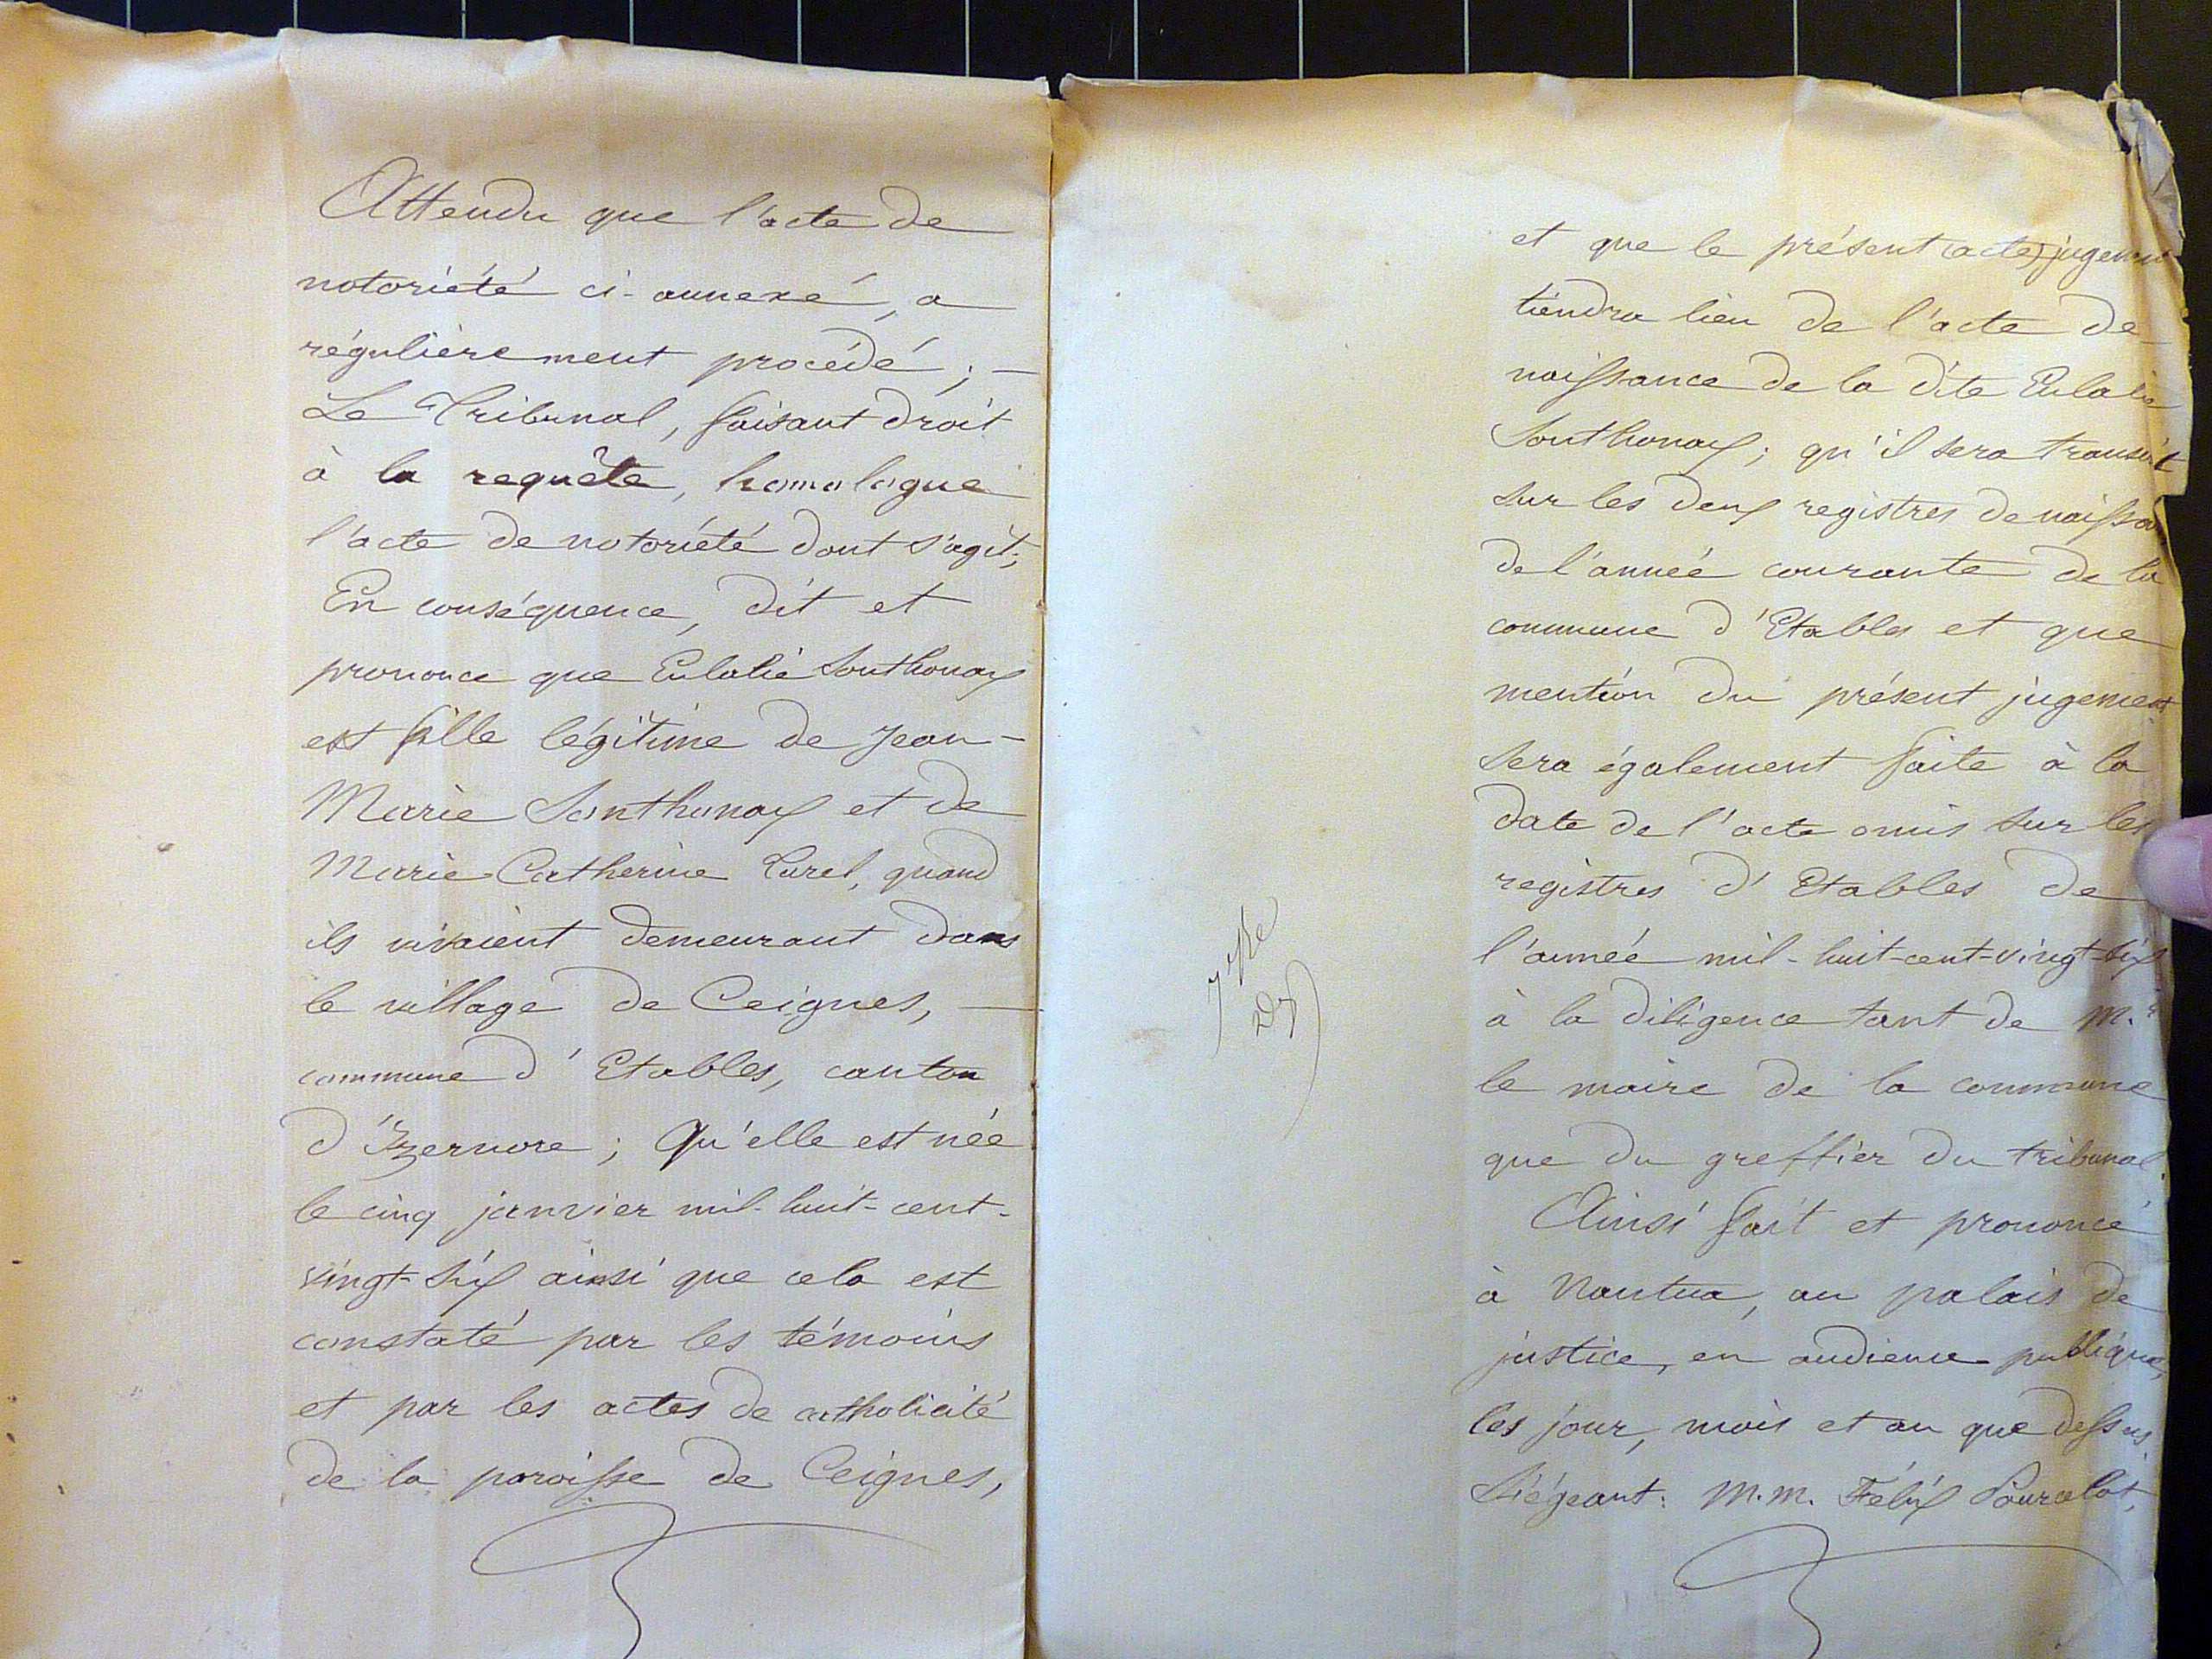 Attendu que l'acte de
notoriété ci-annexé, a
régulièrement procédé ; —
Le Tribunal, faisant droit
à la requête, homologue
l'acte de notoriété dont s'agit ;
En conséquence, dit et
prononce que Eulalie Sonthonax
est fille légitime de Jean-
Marie Sonthonax et de
Marie Catherine Curel, quand
ils vivaient demeurant dans
le village de Ceignes, —
commune d'Etables, canton
d'Izernore ; Qu'elle est née
le cinq janvier mil-huit-cent-
vingt-six ainsi que cela est
constaté par les témoins
et par les actes de catholicité
de la paroisse de Ceignes,
et que le présent (acte) jugement
tiendra lieu de l'acte de
naissance de la dite Eulalie
Sonthonax ; qu'il sera transcrit
sur les deux registres de
de l'année courante de la
commune d'Etables et que
mention du présent jugement
sera également faite à la
date de l'acte omis sur les
registres d'Etables de
l'année mil-huit-cent-vingt-six
à la diligence tant de M.r
le maire de la commune
que du greffier du tribunal.
Ainsi fait et prononcé
à Nantua, au palais de
justice, en audience publique,
les jour, mois et an que dessus.
Siégeant : M.M. Félix Pourcelot,